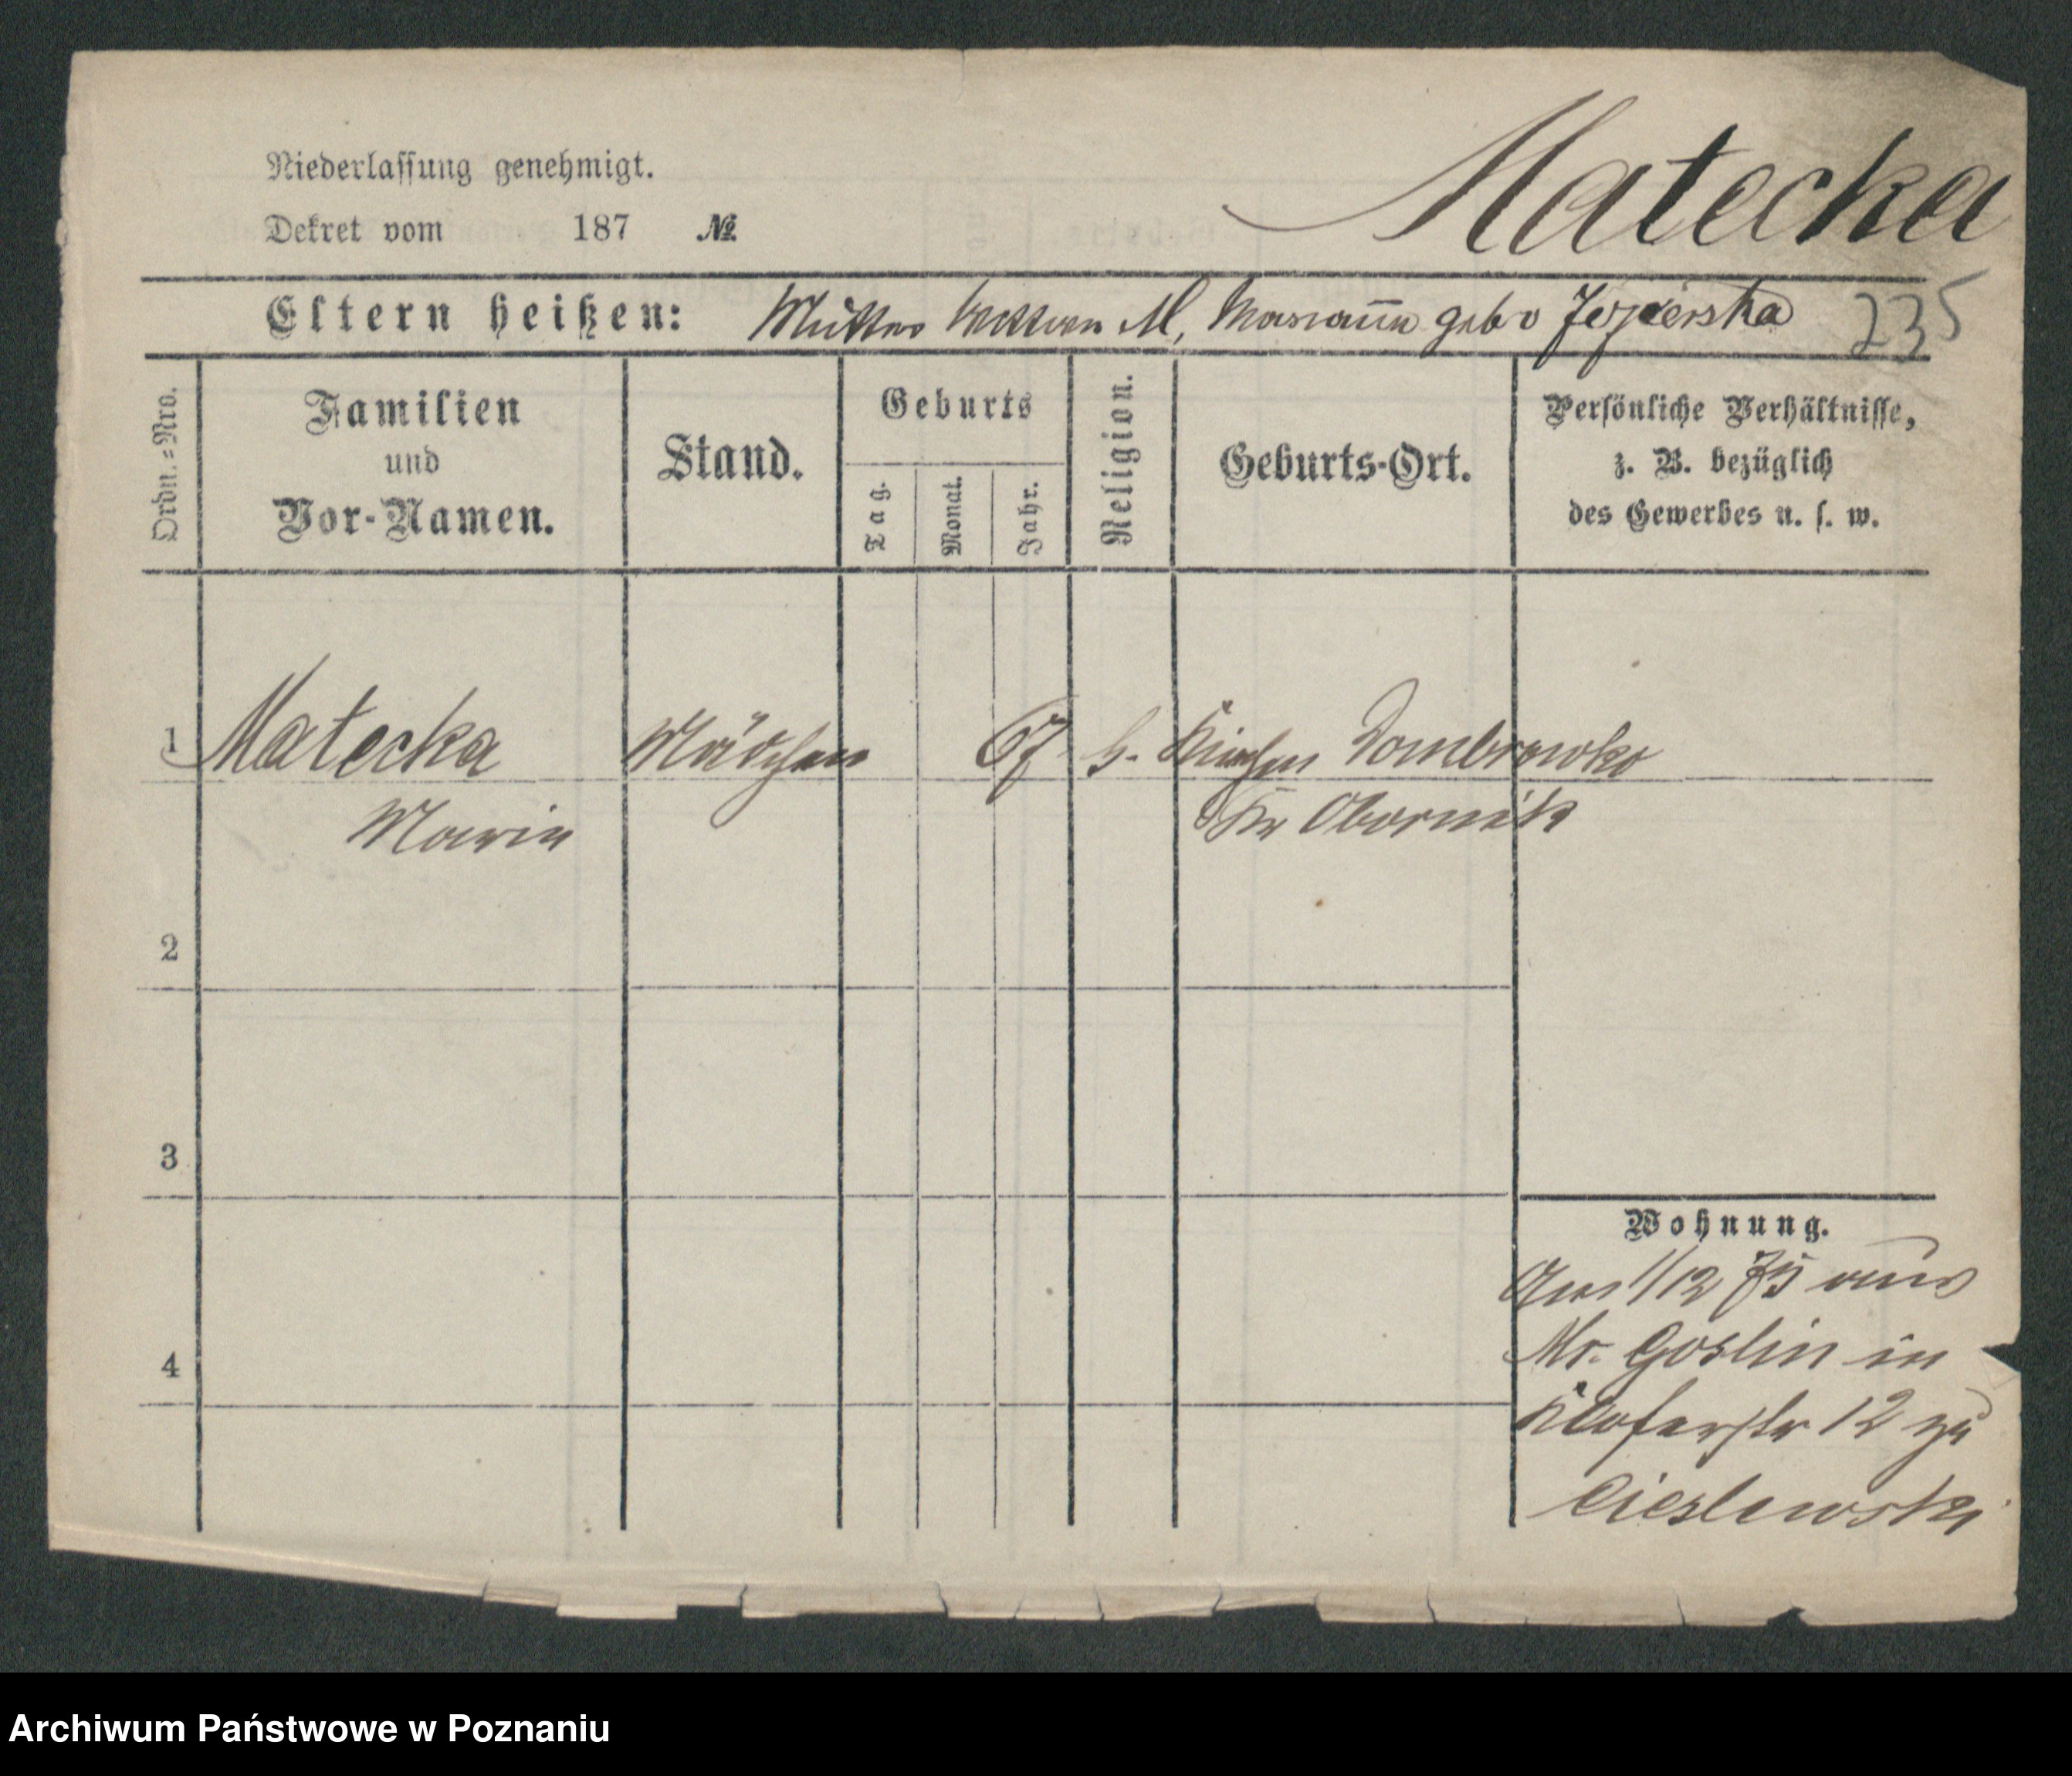 Niederlassung genehmigt.
Dekret vom 187 №
Matecka
Eltern heißen: Mutter Wittwe M, Mariann geb.
235
Ordn.=Nro.
Familien
und
Vor-Namen.
Stand.
Geburts
Tag.
Monat.
Jahr.
Religion.
Geburts-Ort.
Persönliche Verhältnisse,
z. B. bezüglich
des Gewerbes u. s. w.
1 Matecka Mädchen 67 Dombrowko
Marie Kr Obornik
2
3
4
Wohnung.
Am 1/12 75 aus
Mr. Goslin in
12 zu
Cieslewski
Archiwum Państwowe w Poznaniu